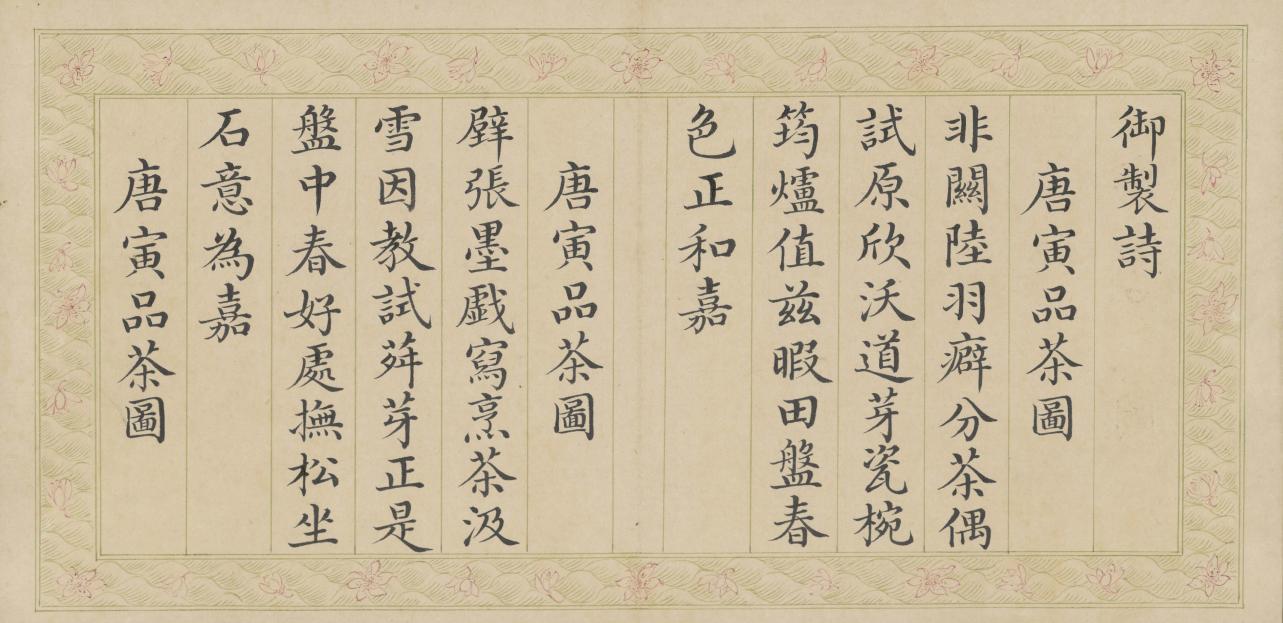 御製詩
唐寅品茶圖
非關陸羽癖分茶偶
試原欣沃道芽瓷椀
筠爐值兹暇田盤春
色正和嘉
唐寅品茶圖
擘張墨戲寫烹茶汲
雪因教試荈芽正是
盤中春好處撫松坐
石意為嘉
唐寅品茶圖